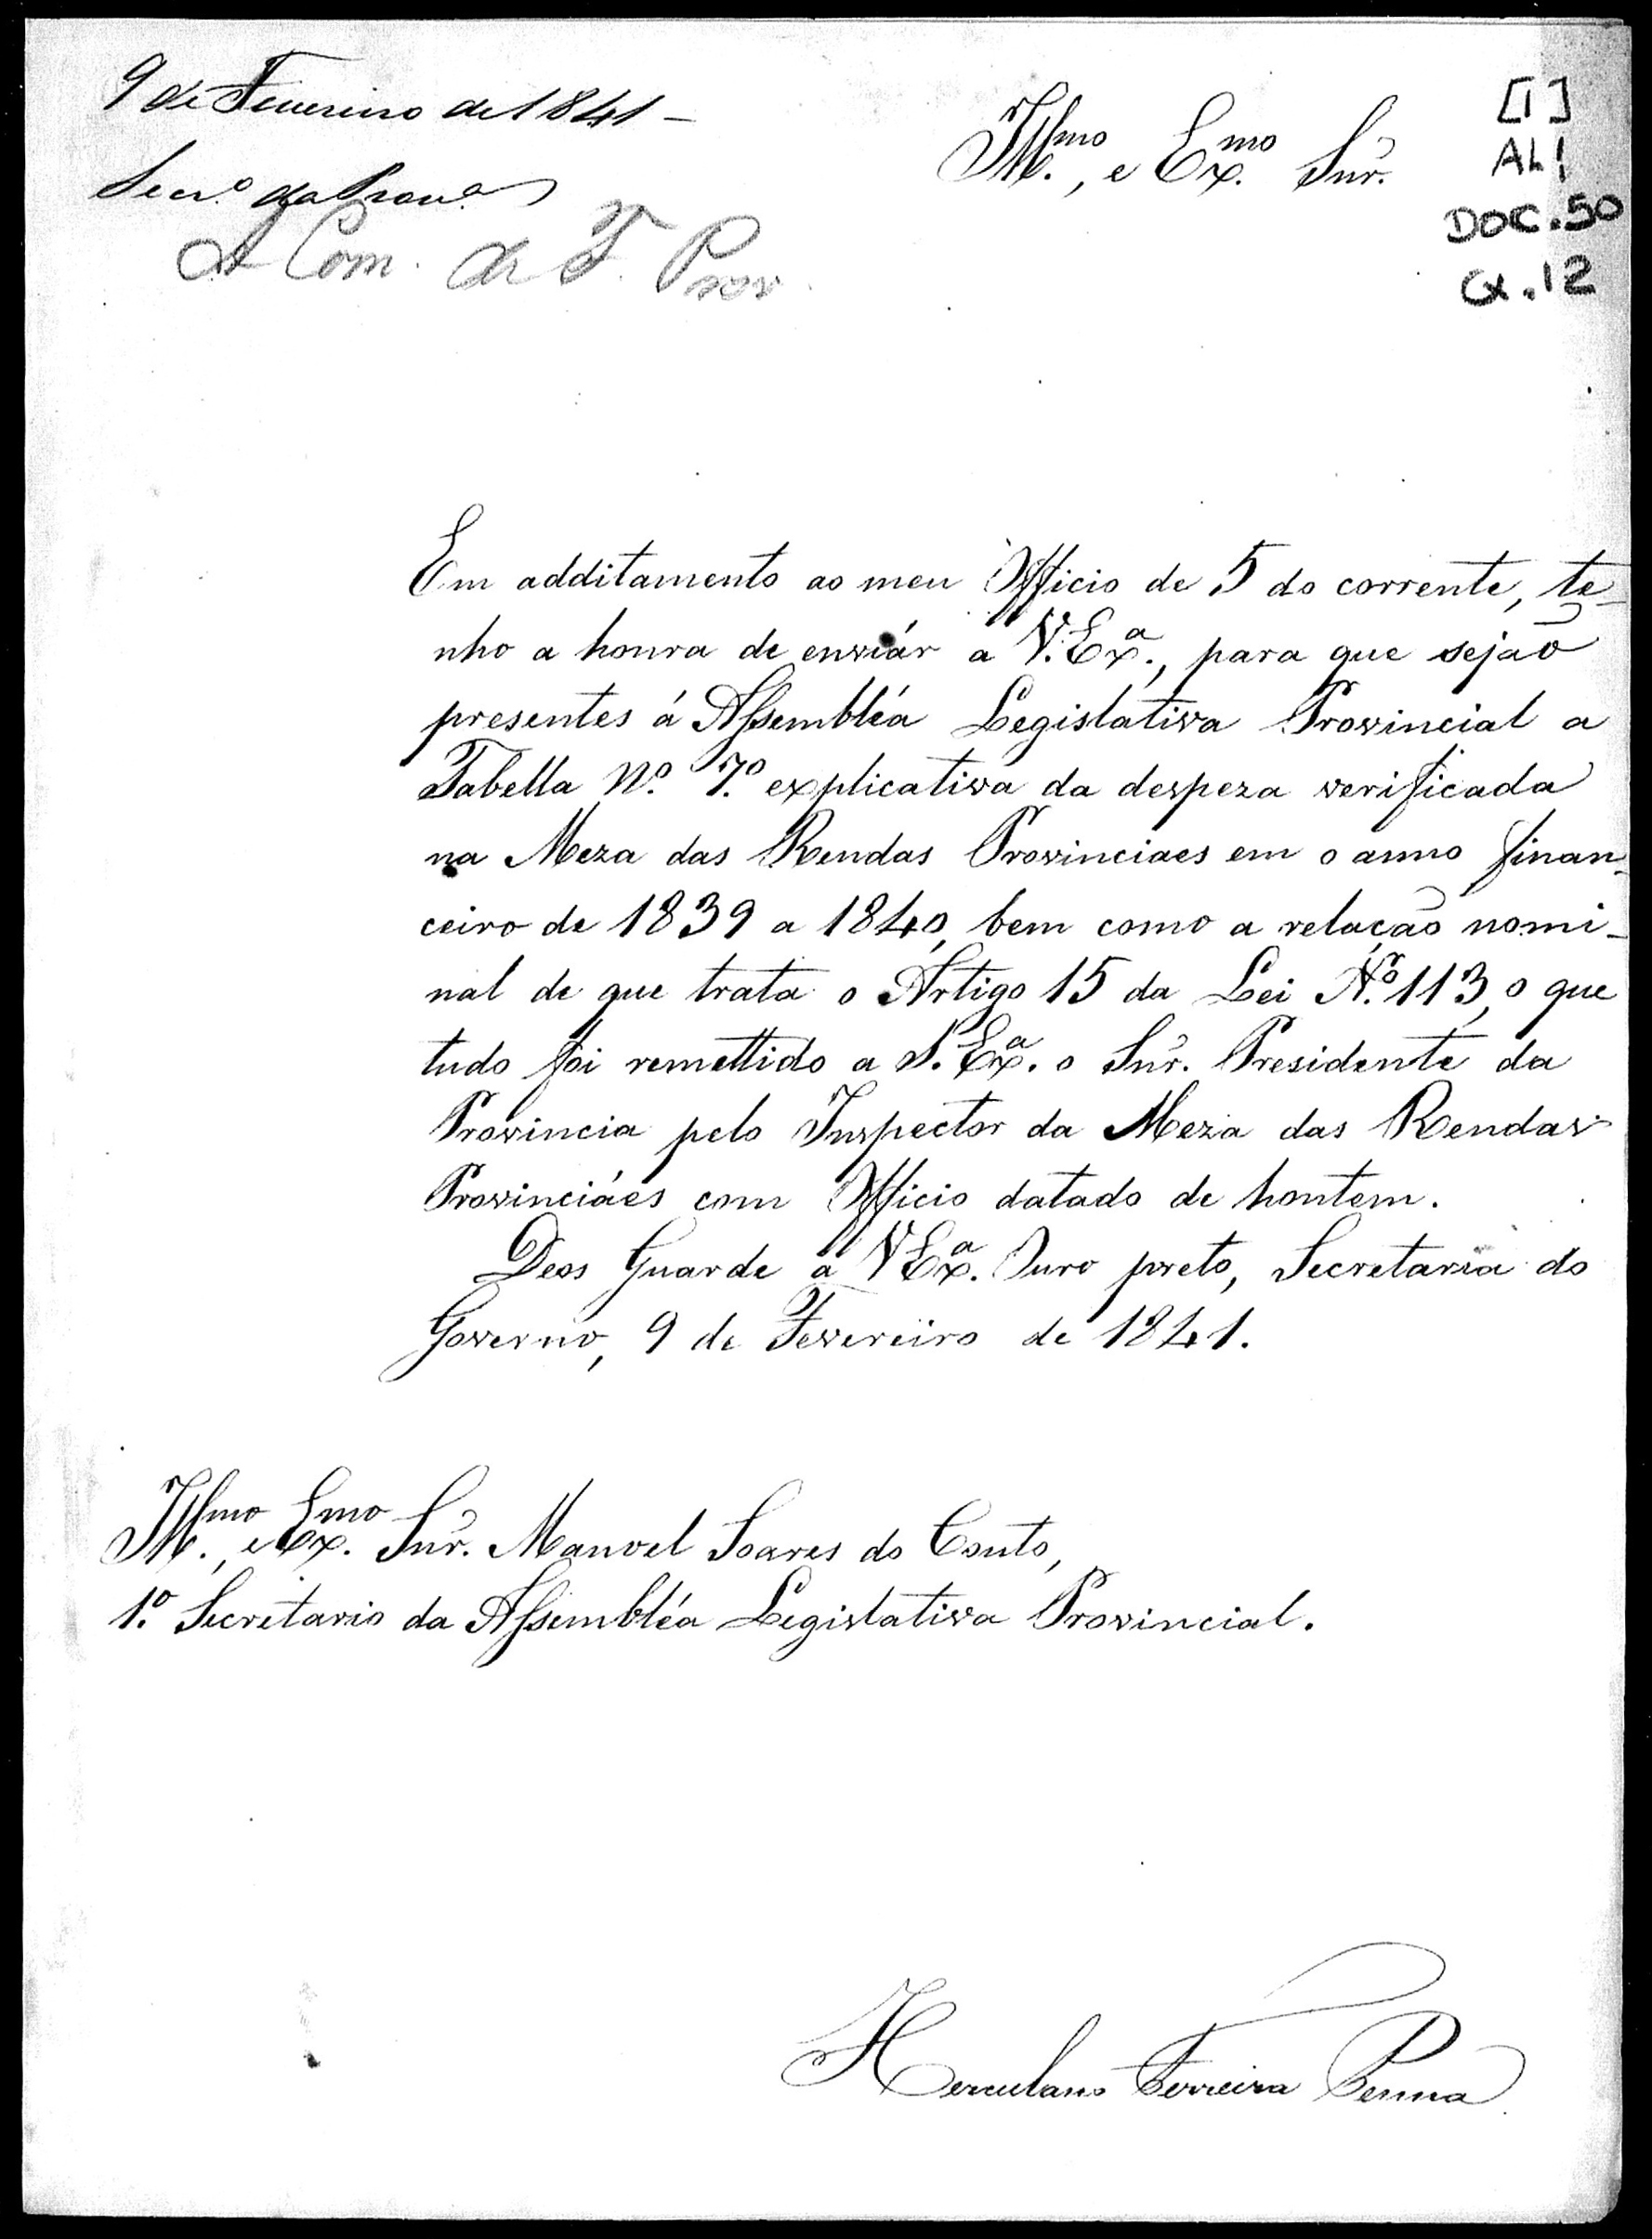 9 de Fevereiro de 1841 –
Secr.º da Prov.ª
A Com. de F. Prov.
Ill.mo, e Ex.mo Snr.
[1]
AL1
DOC.50
CX.12
Em additamento ao meu Officio de 5 do corrente, te-
nho a honra de enviár a V. Ex.ª, para que sejaõ
presentes á Assembléa Legislativa Provincial a
Tabella N.º 7.º explicativa da despeza verificada
na Meza das Rendas Provinciaes em o anno finan-
ceiro de 1839 a 1840, bem como a relação nomi-
nal de que trata o Artigo 15 da Lei N.º 113, o que
tudo foi remettido a S. Ex.ª o Snr. Presidente da
Provincia pelo Inspector da Meza das Rendas
Provinciáes com Officio datado de hontem.
Deos Guarde a V Ex.ª Ouro preto, Secretaria do
Governo, 9 de Fevereiro de 1841.
Ill.mo, e Ex.mo Snr. Manoel Soares do Couto,
1.º Secretario da Assembléa Legislativa Provincial.
Herculano Ferreira Penna